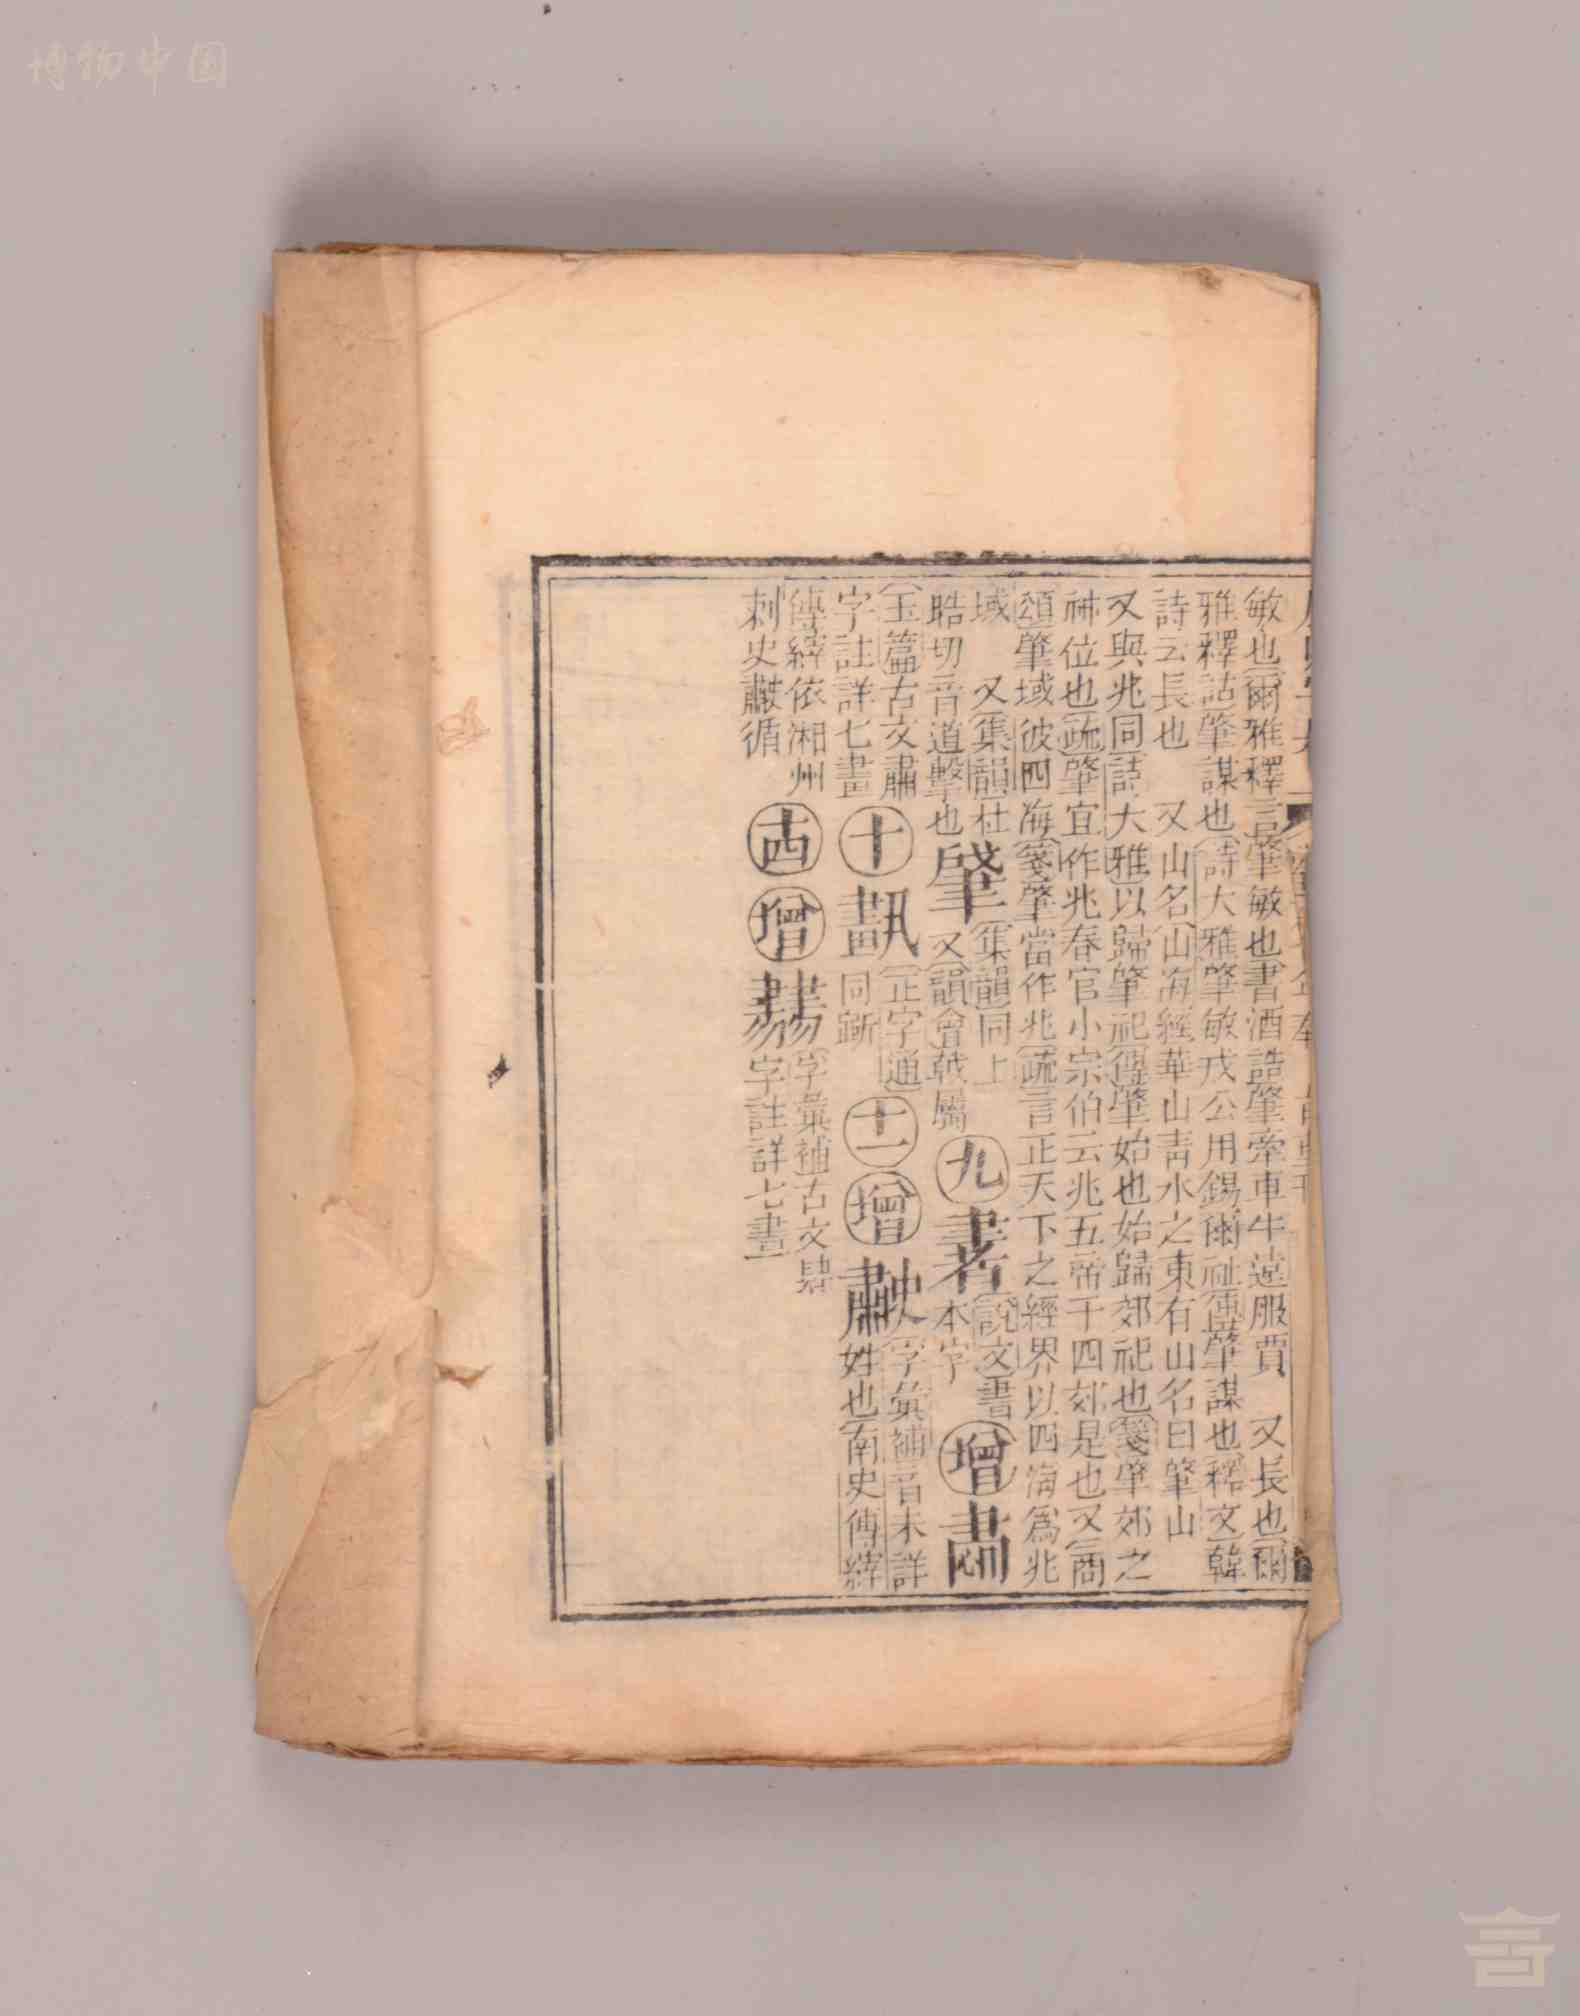 博物中国
敏也爾雅釋言肇敏也書酒誥肇牽車牛遠服賈 又長也爾
雅釋詁肇謀也詩大雅肇敏戎公用錫爾祉傳肇謀也釋文韓
詩云長也 又山名山海經華山青水之東有山名曰肇山
又與兆同詩大雅以歸肇祀傳肇始也始歸郊祀也箋肇郊之
神位也疏肇宜作兆春官小宗伯云兆五帝于四郊是也又商
頌肇域彼四海箋肇當作兆疏言正天下之經界以四海爲兆
域 又集韻杜
晧切音道擊也
肈
集韻同上
又韻會戟屬
九
書
說文書
本字
增
玉篇古文肅
字註詳七畫
十
正字通
同斷
十一
增
字彙補音未詳
姓也南史傅縡
傳縡依湘州
刺史蕭循
古
增
字彙補古文肆
字註詳七畫